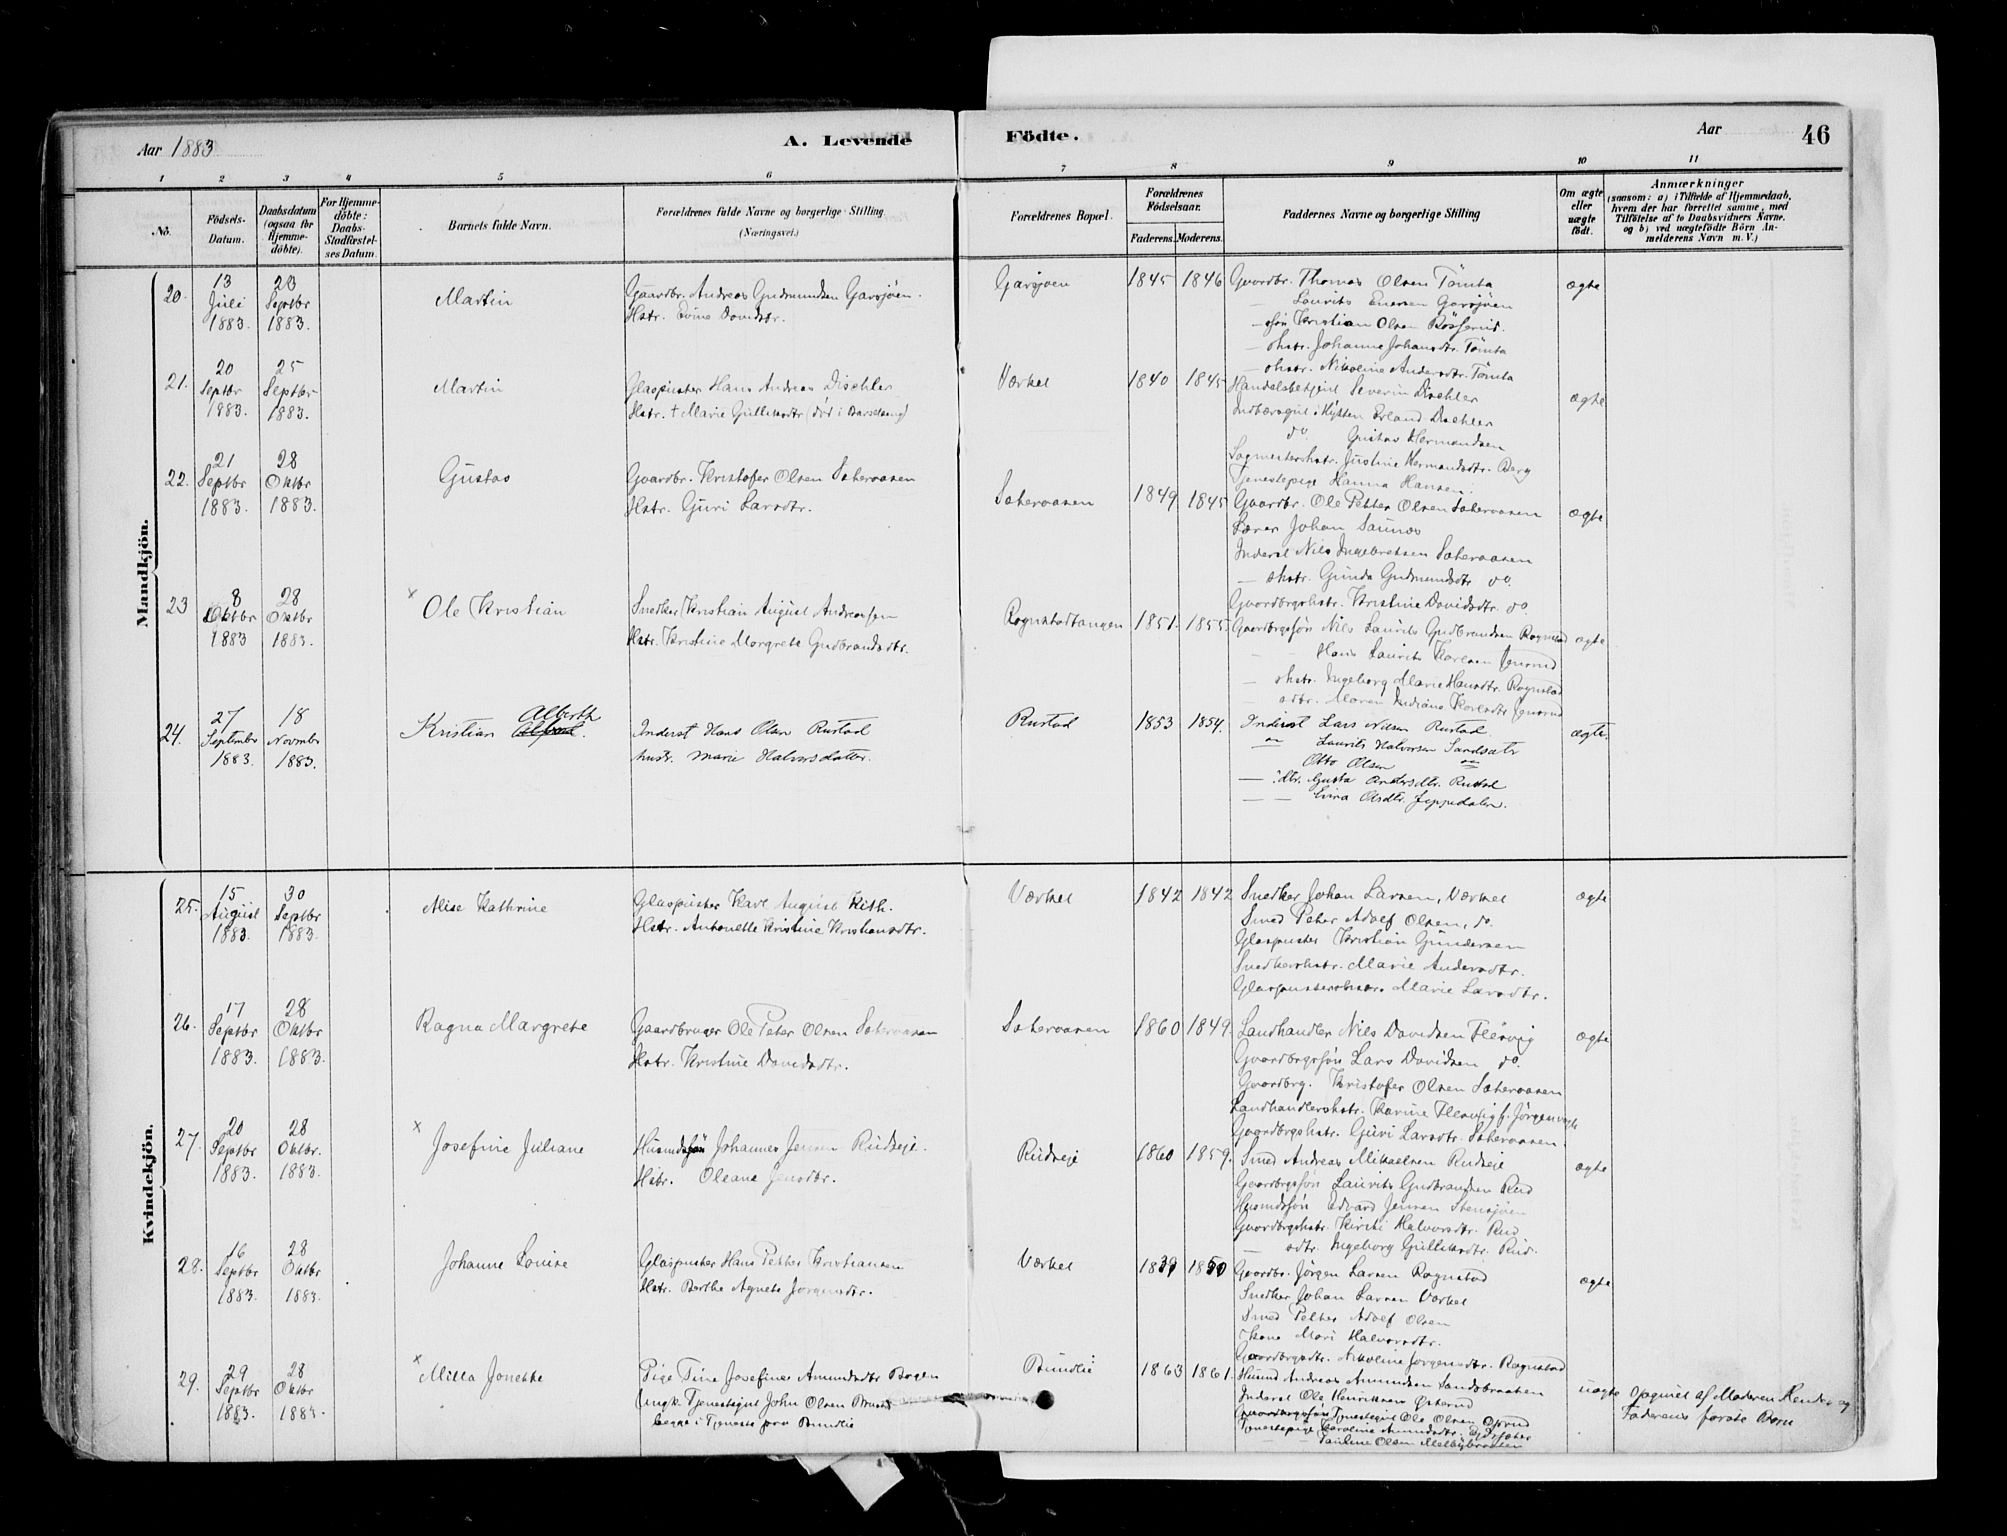 Aar 1883
A. Levende
Födte.
Aar
46
1 2 3 4 5 6 7 8 9 10 11
No.
Födsels-Datum.
Daabsdatum (ogsaa for Hjemme-döbte).
For Hjemme-döbte: Daabs-Stadfæstel-ses Datum.
Barnets fulde Navn.
Forældrenes fulde Navne og borgerlige Stilling
(Næringsvei.)
Forældrenes Bopæl.
Forældrenes Födselsaar.
Faderens. Moderens.
Faddernes Navne og borgerlige Stilling
Om ægte eller uægte födt.
Anmærkninger
(saasom: a) i Tilfælde af Hjemmedaab,
hvem der har forrettet samme, med
Tilföielse af to Daabsvidners Navne.
og b) ved uægtefödte Börn An-
melderens Navn m. V.)
Mandkjön.
20.
13 Juli 1883.
23 Septbr 1883.
Martin
Gaardbr. Andreas Gudmundsen Garsjöen.
Hstr. Evine Davidsdtr.
Garsjöen
1845 1846
Gaardbr. Thomas Olsen Tömta
— Laurits Enersen Garsjöen
— sön Kristian Olsen
— shstr. Johanne Johansdtr. Tömta
— shstr. Nikoline Andersdtr. Tömta
ægte
21.
20 Septbr 1883.
25 Septbr 1883.
Martin
Glaspuster Hans Andreas Dischler
Hstr. † Marie Gulliksdtr (död i Barselseng)
Værket
1840 1845
Handelsbetjent Severin Dischler
Indbærergut i Hytten Erland Dischler
do. Gustav Hermandsen
Sagmestershstr. Justine Hermandsdtr. Berg
Tjenestepige Hanna Hansen.
ægte
22.
21 Septbr 1883.
28 Oktbr 1883.
Gustav
Gaardbr. Kristofer Olsen Sateraasen
Hstr. Guri Larsdtr.
Sateraasen
1849 1845
Gaardbr. Ole Petter Olsen Sateraasen
Lærer Johan Saunes
Inderst Nils Ingebretsen Sateraasen
— shstr. Gunda Gudmundsdtr do.
Gaardbrgshstr. Kristine Davidsdtr. do.
ægte
23
8 Oktbr 1883
28 Oktbr 1883.
× Ole Kristian
Snedker Kristian August Andreasen
Hstr. Kristine Margrete Gudbrandsdtr.
Rognstadtangen
1851. 1855.
Gaardbrgssön Nils Laurits Gudbrandsen Rognstad
— — Hans Laurits Karlsen
— shstr. Ingeborg Marie Hansdtr. Rognstad
— sdtr. Maren Indiane Karlsdtr
ægte
24.
27 September 1883.
18 Novmbr 1883.
Kristian Alberth
Inderst Hans Olsen Rustad
hustr. Marie Halvorsdatter.
Rustad
1853 1854.
Inderst Lars Nilsen Rustad
— Laurits Halvorsen Sandsætr
Otto Olsen —
— dtr. Gusta Andersdtr. Rustad
— — Olsdtr. Jeppedalen.
ægte.
Kvindekjön.
25.
15 August 1883.
30 Septbr 1883.
Alise Kathrine
Glaspuster Karl August Kith.
Hstr. Antonette Kristine Kristiansdtr.
Værket
1842 1842
Snedker Johan Larsen, Værket
Smed Peter Adolf Olsen, do.
Glaspuster Kristian Gundersen
Snedkershstr. Marie Andersdtr.
Glaspustershstr. Marie Larsdtr.
ægte
26.
17 Septbr 1883.
28 Oktbr 1883.
Ragna Margrete
Gaardbruger Ole Peter Olsen Sateraasen
Hstr. Kristine Davidsdtr.
Sateraasen
1860 1849.
Landhandler Nils Davidsen Flesvig
Gaardbrgssön Lars Davidsen do.
Gaardbrg. Kristofer Olsen Sateraasen
Landhandlershstr. Karine Flesvig f. Jörgensvogt
Gaardbrgshstr. Guri Larsdtr. Sateraasen
ægte
27.
20 Septbr 1883.
28 Oktbr. 1883.
× Josefine Juliane
Husmdssön Johannes Jensen Rudseje.
Hstr. Oleane Jensdtr.
Rudseje
1860 1859.
Smed Andreas Mikaelsen Rudseje
Gaardbrgssön Laurits Gudbrandsen Rud
Husmdssön Edvard Jensen Stensjöen
Gaardbrgshstr. Kirsti Halvorsdtr. Rud
— sdtr. Ingeborg Gulliksdtr. Rud.
ægte
28.
16 Septbr 1883.
28 Oktbr 1883.
Johanne Louise
Glaspuster Hans Petter Kristiansen
Hstr. Berthe Agnete Jörgensdtr.
Værket
1839 1850
Gaardbr. Jörgen Larsen Rognstad
Snedker Johan Larsen Værket
Smed Petter Adolf Olsen
Kone Mari Halvorsdtr.
Gaardbrgsdtr. Nikoline Jörgensdtr. Rognstad
ægte
29.
29 Septbr 1883.
28 Oktbr 1883.
× Milla Jonette
Pige Tine Josefine Amundsdtr Bogen
Ungk. Tjenestegut John Olsen
begge i Tjeneste paa Bundlie
Bundlie
1863 1861.
Husmd Andreas Amundsen Sandsbraaten
Inderst Ole Henriksen Österud
Tjenestegut Ole Olsen
Tjenestepige Karoline Amundsdtr.
— Pauline Olsen Melbybraaten
uægte
Opgivet af Moderen Hendes og
Faderens förste Barn